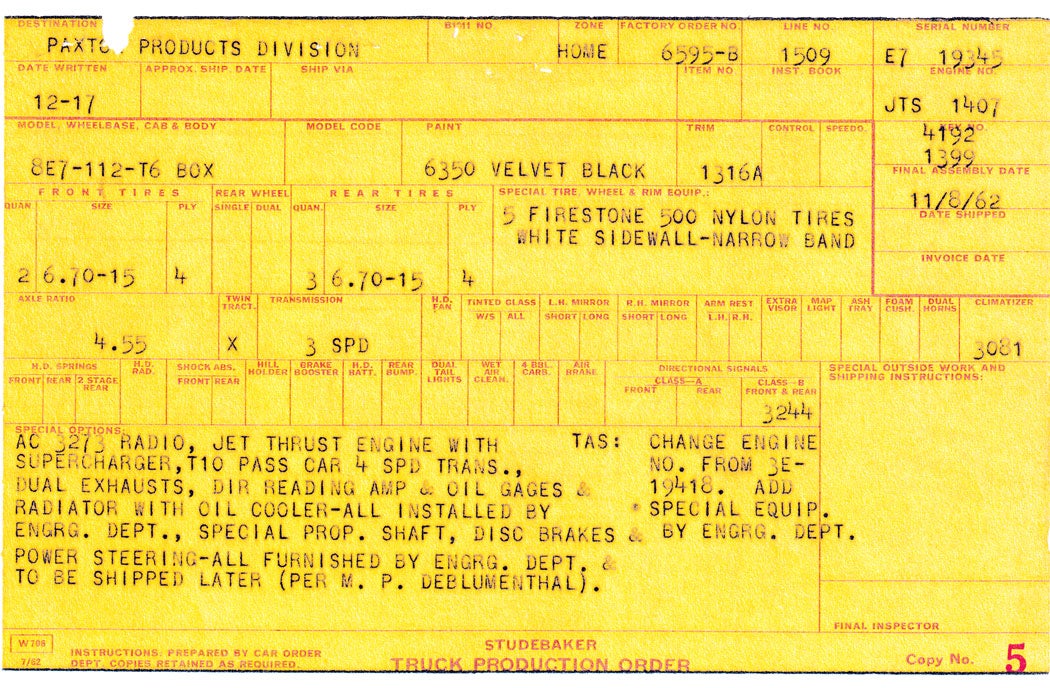 DESTINATION BODY NO. ZONE FACTORY ORDER NO. LINE NO. SERIAL NUMBER
PAXTON PRODUCTS DIVISION HOME 6595-B 1509 E7 19345
DATE WRITTEN APPROX. SHIP. DATE SHIP VIA ITEM NO INST. BOOK ENGINE NO.
12-17 JTS 1407
MODEL, WHEELBASE, CAB & BODY MODEL CODE PAINT TRIM CONTROL SPEEDO. KEY NO.
4192
8E7-112-T6 BOX 6350 VELVET BLACK 1316A 1399
FINAL ASSEMBLY DATE
11/8/62
FRONT TIRES REAR WHEEL REAR TIRES SPECIAL TIRE, WHEEL & RIM EQUIP.:
QUAN SIZE PLY SINGLE DUAL QUAN. SIZE PLY
5 FIRESTONE 500 NYLON TIRES DATE SHIPPED
WHITE SIDEWALL-NARROW BAND
INVOICE DATE
2 6.70-15 4 3 6.70-15 4
AXLE RATIO TWIN TRACT. TRANSMISSION H.D. FAN TINTED GLASS L.H. MIRROR R.H. MIRROR ARM REST EXTRA VISOR MAP LIGHT ASH TRAY FOAM CUSH. DUAL HORNS CLIMATIZER
W/S ALL SHORT LONG SHORT LONG L.H. R.H.
4.55 X 3 SPD 3081
H.D. SPRINGS H.D. RAD. SHOCK ABS. HILL HOLDER BRAKE BOOSTER H.D. BATT. REAR BUMP. DUAL TAIL LIGHTS WET AIR CLEAN. 4 BBL. CARB. AIR BRAKE DIRECTIONAL SIGNALS SPECIAL OUTSIDE WORK AND
SHIPPING INSTRUCTIONS:
FRONT REAR 2 STAGE REAR FRONT REAR CLASS-A FRONT REAR CLASS-B FRONT & REAR
3244
SPECIAL OPTIONS:
AC 3273 RADIO, JET THRUST ENGINE WITH TAS: CHANGE ENGINE
SUPERCHARGER,T10 PASS CAR 4 SPD TRANS., NO. FROM 3E-
DUAL EXHAUSTS, DIR READING AMP & OIL GAGES & 19418. ADD
RADIATOR WITH OIL COOLER-ALL INSTALLED BY * SPECIAL EQUIP.
ENGRG. DEPT., SPECIAL PROP. SHAFT, DISC BRAKES & BY ENGRG. DEPT.
POWER STEERING-ALL FURNISHED BY ENGRG. DEPT. &
TO BE SHIPPED LATER (PER M. P. DEBLUMENTHAL).
FINAL INSPECTOR
W 708
7/62
INSTRUCTIONS: PREPARED BY CAR ORDER
DEPT. COPIES RETAINED AS REQUIRED.
STUDEBAKER
TRUCK PRODUCTION ORDER
Copy No. 5